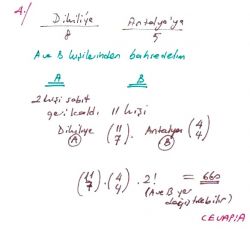 4./ Dikiliye Antalya'ya
8 5
A ve B kişilerinden bahredelim
A B
2 kişi sabit
geri kaldı 11 kişi
Dikiliye (11 7). Antalya (4 4)
A B
(11 7) . (4 4) . 2! = 660
(A ve B yer
değiştirebilir)
CEVAP:A